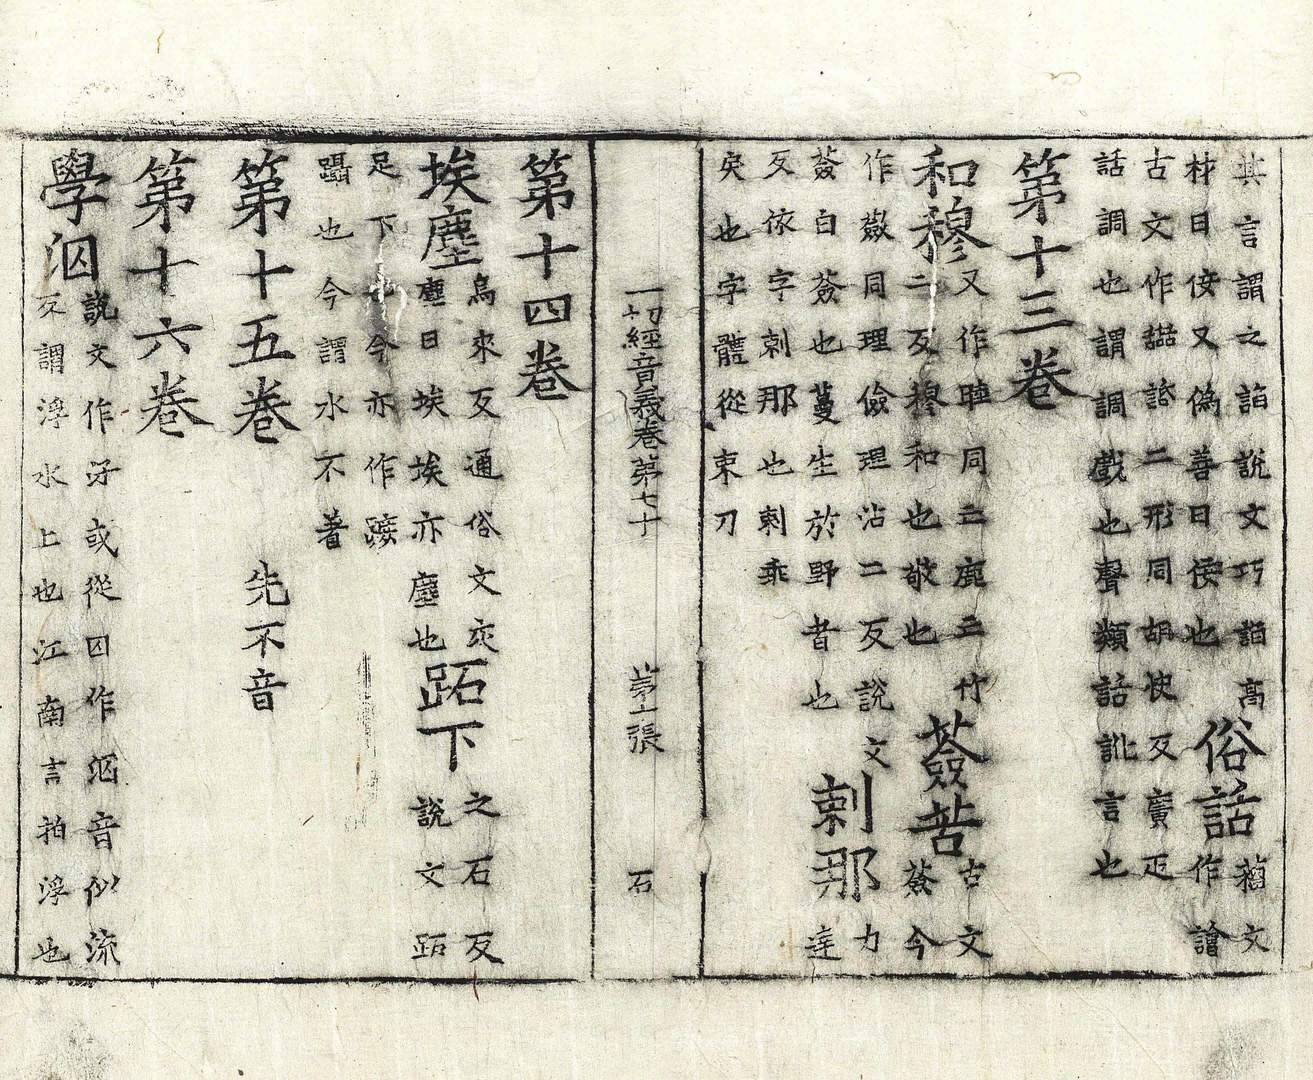 其言謂之詒說文巧詒高
材曰侫又偽善曰侫也
俗話
籀文
作譮
古文作譮䛡二形同胡快反廣疋
話調也謂調戲也聲類話訛言也
第十三卷
和穆
又作睦同亡鹿亡竹
二反穆和也敬也
薟苦
古文
薟今
作蘞同理儉理沾二反說文
薟白薟也蔓生於野者也
剌那
力
達
反依字剌那也剌乖
戾也字體從束刀
一切經音義卷第七十 第十一張 石
第十四卷
埃塵
烏來反通俗文灾
塵曰埃埃亦塵也
跖下
之石反
說文跖
足下也今亦作蹠
躡也今謂水不著
第十五卷 先不音
第十六卷
學泅
說文作汓或從囚作泅音似流
反謂浮水上也江南言拍浮也